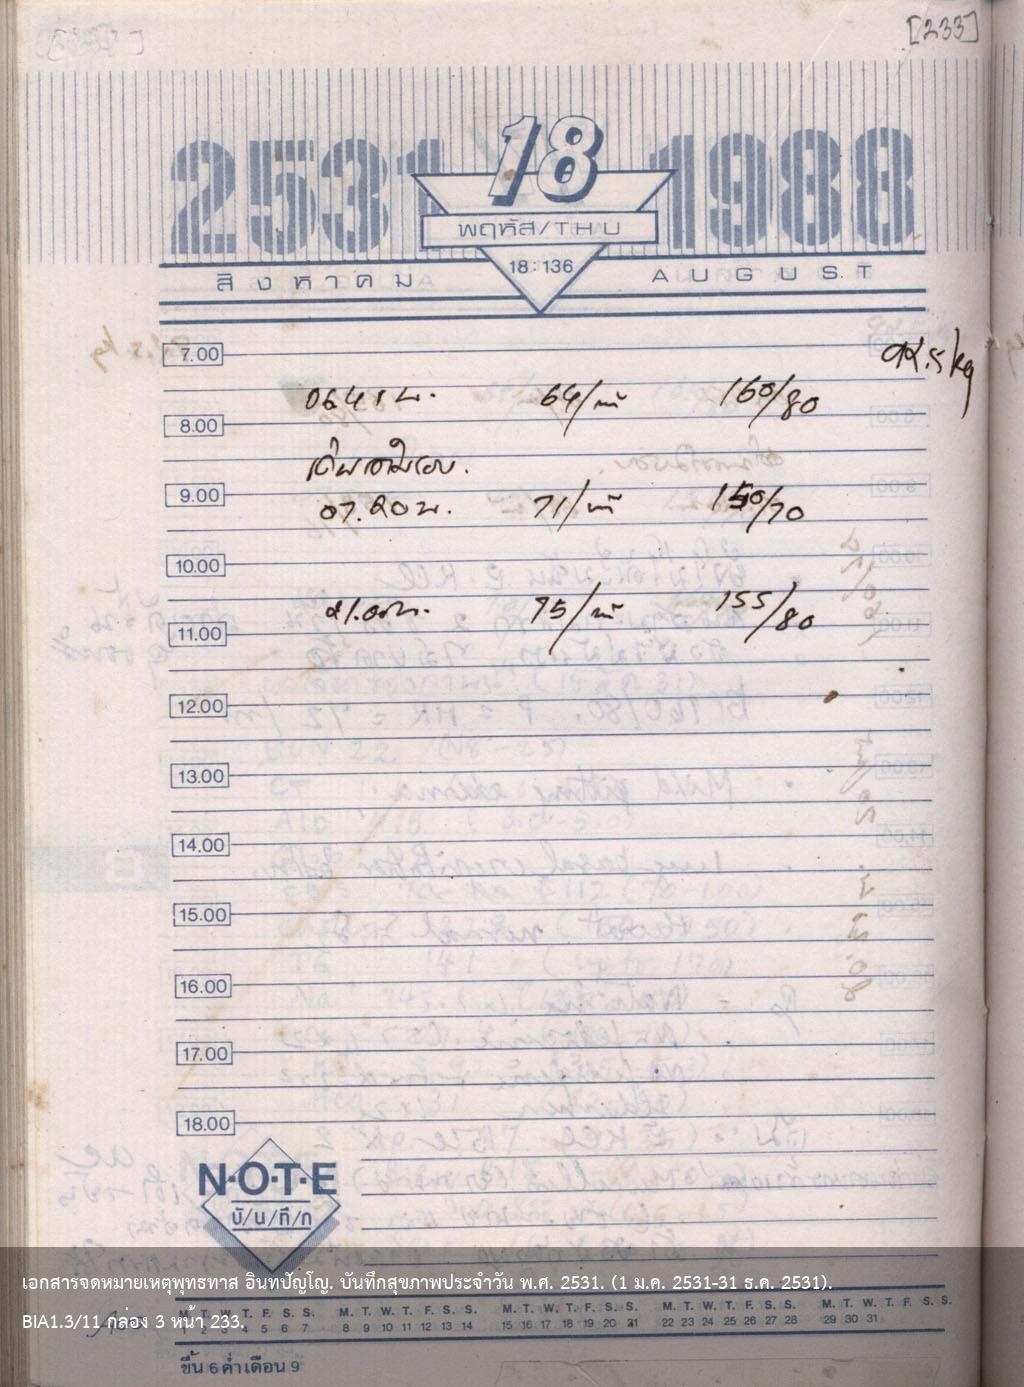 [233]
2531 18 1988
พฤหัส/THU
18:136
สิงหาคม AUGUST
7.00
06.41 น. 64/นที 160/80
8.00
9.00
07.20 น. 71/นที 150/70
10.00
21.00น. 75/นที 155/80
11.00
12.00
13.00
14.00
15.00
16.00
17.00
18.00
N·O·T·E
บั/น/ทึ/ก
เอกสารจดหมายเหตุพุทธทาส อินทปัญโญ. บันทึกสุขภาพประจำวัน พ.ศ. 2531. (1 ม.ค. 2531-31 ธ.ค. 2531).
BIA1.3/11 กล่อง 3 หน้า 233.
M. T. W. T. F. S. S. M. T. W. T. F. S. S. M. T. W. T. F. S. S. M. T. W. T. F. S. S. M. T. W. T. F. S. S.
1 2 3 4 5 6 7 8 9 10 11 12 13 14 15 16 17 18 19 20 21 22 23 24 25 26 27 28 29 30 31
ขึ้น 6 ค่ำ เดือน 9